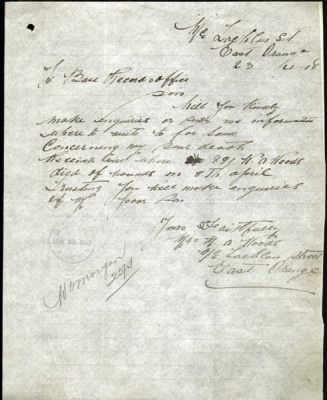 Mc Lachlan St
East Orange
23 4 18
To Base Records office
Sir
Will you kindly
make enquiries or give me information
where to write to for some
Concerning my sons death
Received word where 891 W. O. Woods
died of wounds on 8th april
Trusting you will make enquiries
of my poor son
Yours Faithfully
Mrs M A Woods
Mc Lachlan Street
East Orange